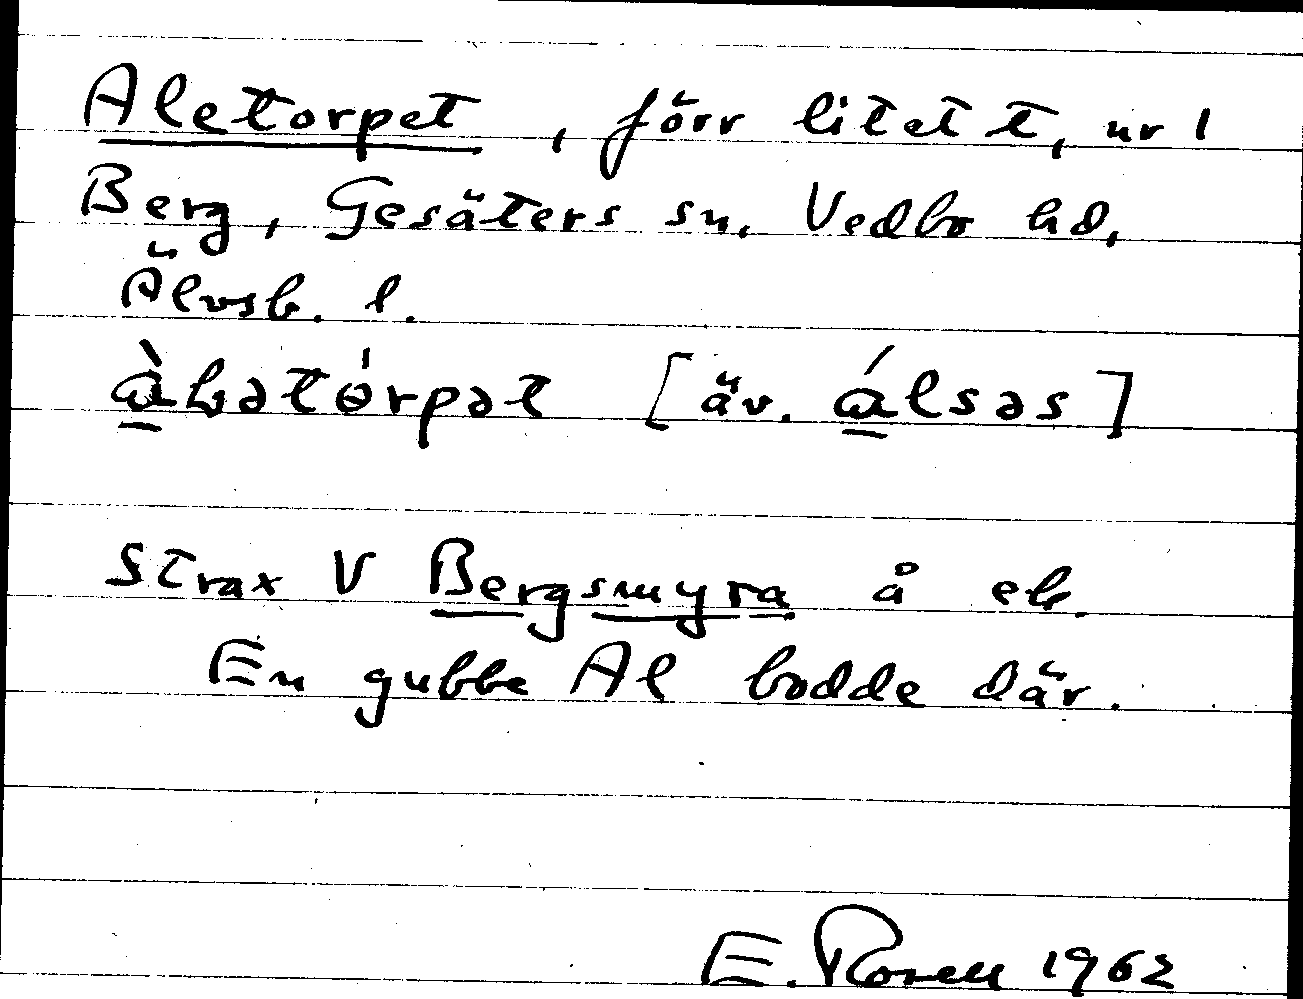 Aletorpet, förr litet t, nr 1
Berg, Gesäters sn. Vedbo hd,
Älvsb. l.
[äv. álsəs]
Strax V Bergsmyra å ek.
En gubbe Al bodde där.
E. Rosell 1962